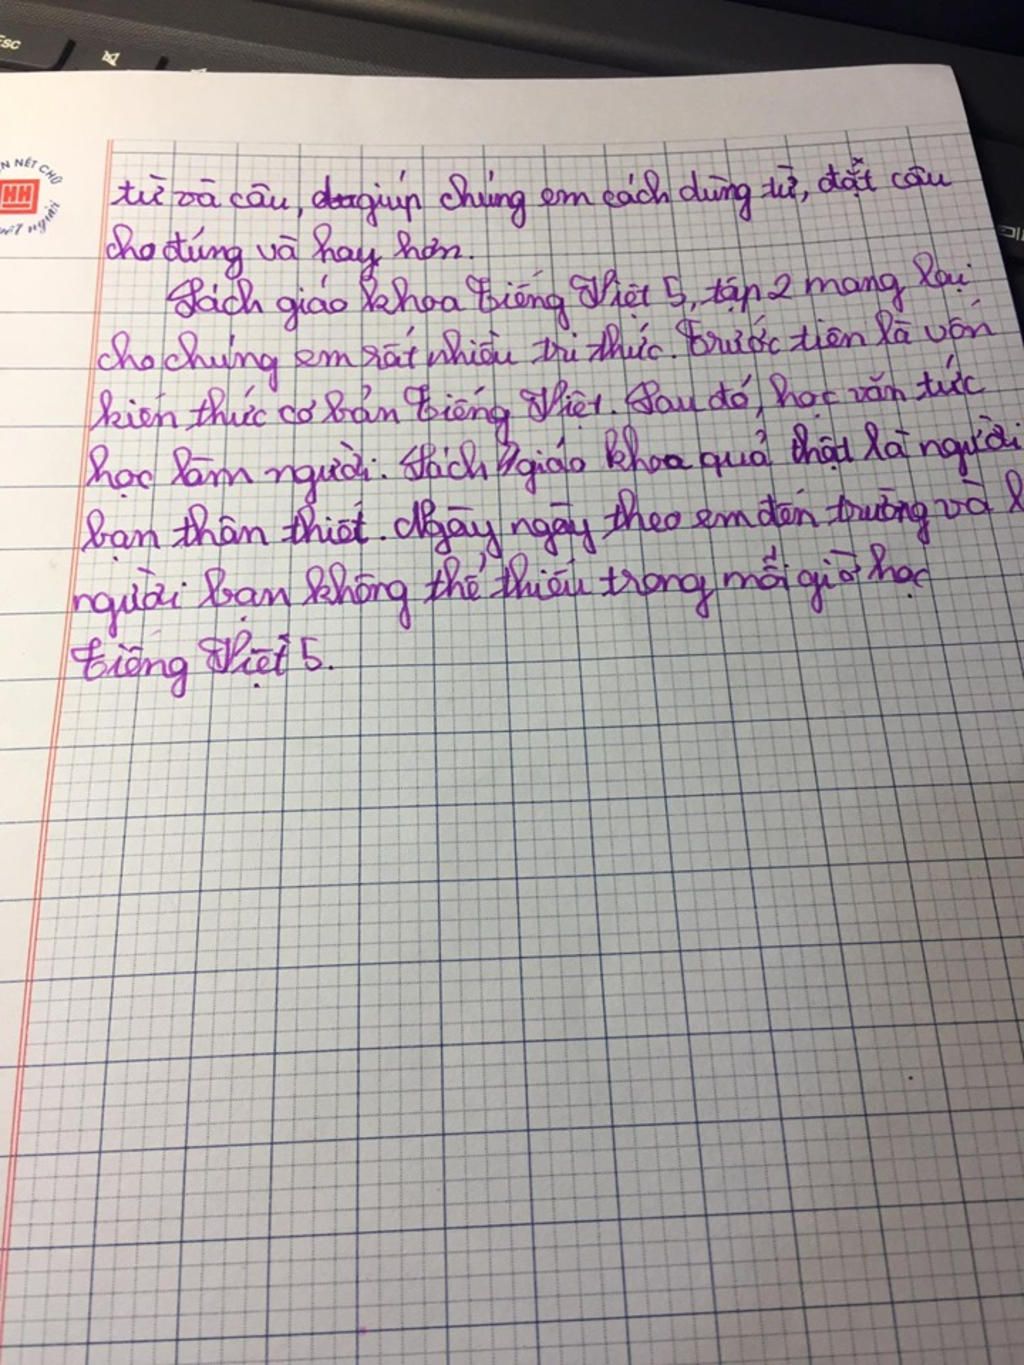 Esc
N NÉT CHỮ
HH
nết người
từ và câu, giúp chúng em cách dùng từ, đặt câu
cho đúng và hay hơn.
Sách giáo khoa Tiếng Việt 5, tập 2 mang lại
cho chúng em rất nhiều tri thức. Trước tiên là vốn
kiến thức cơ bản Tiếng Việt. Sau đó, học văn tức
học làm người. Sách giáo khoa quả thật là người
bạn thân thiết. Ngày ngày theo em đến trường và l
người bạn không thể thiếu trong mỗi giờ học
Tiếng Việt 5.